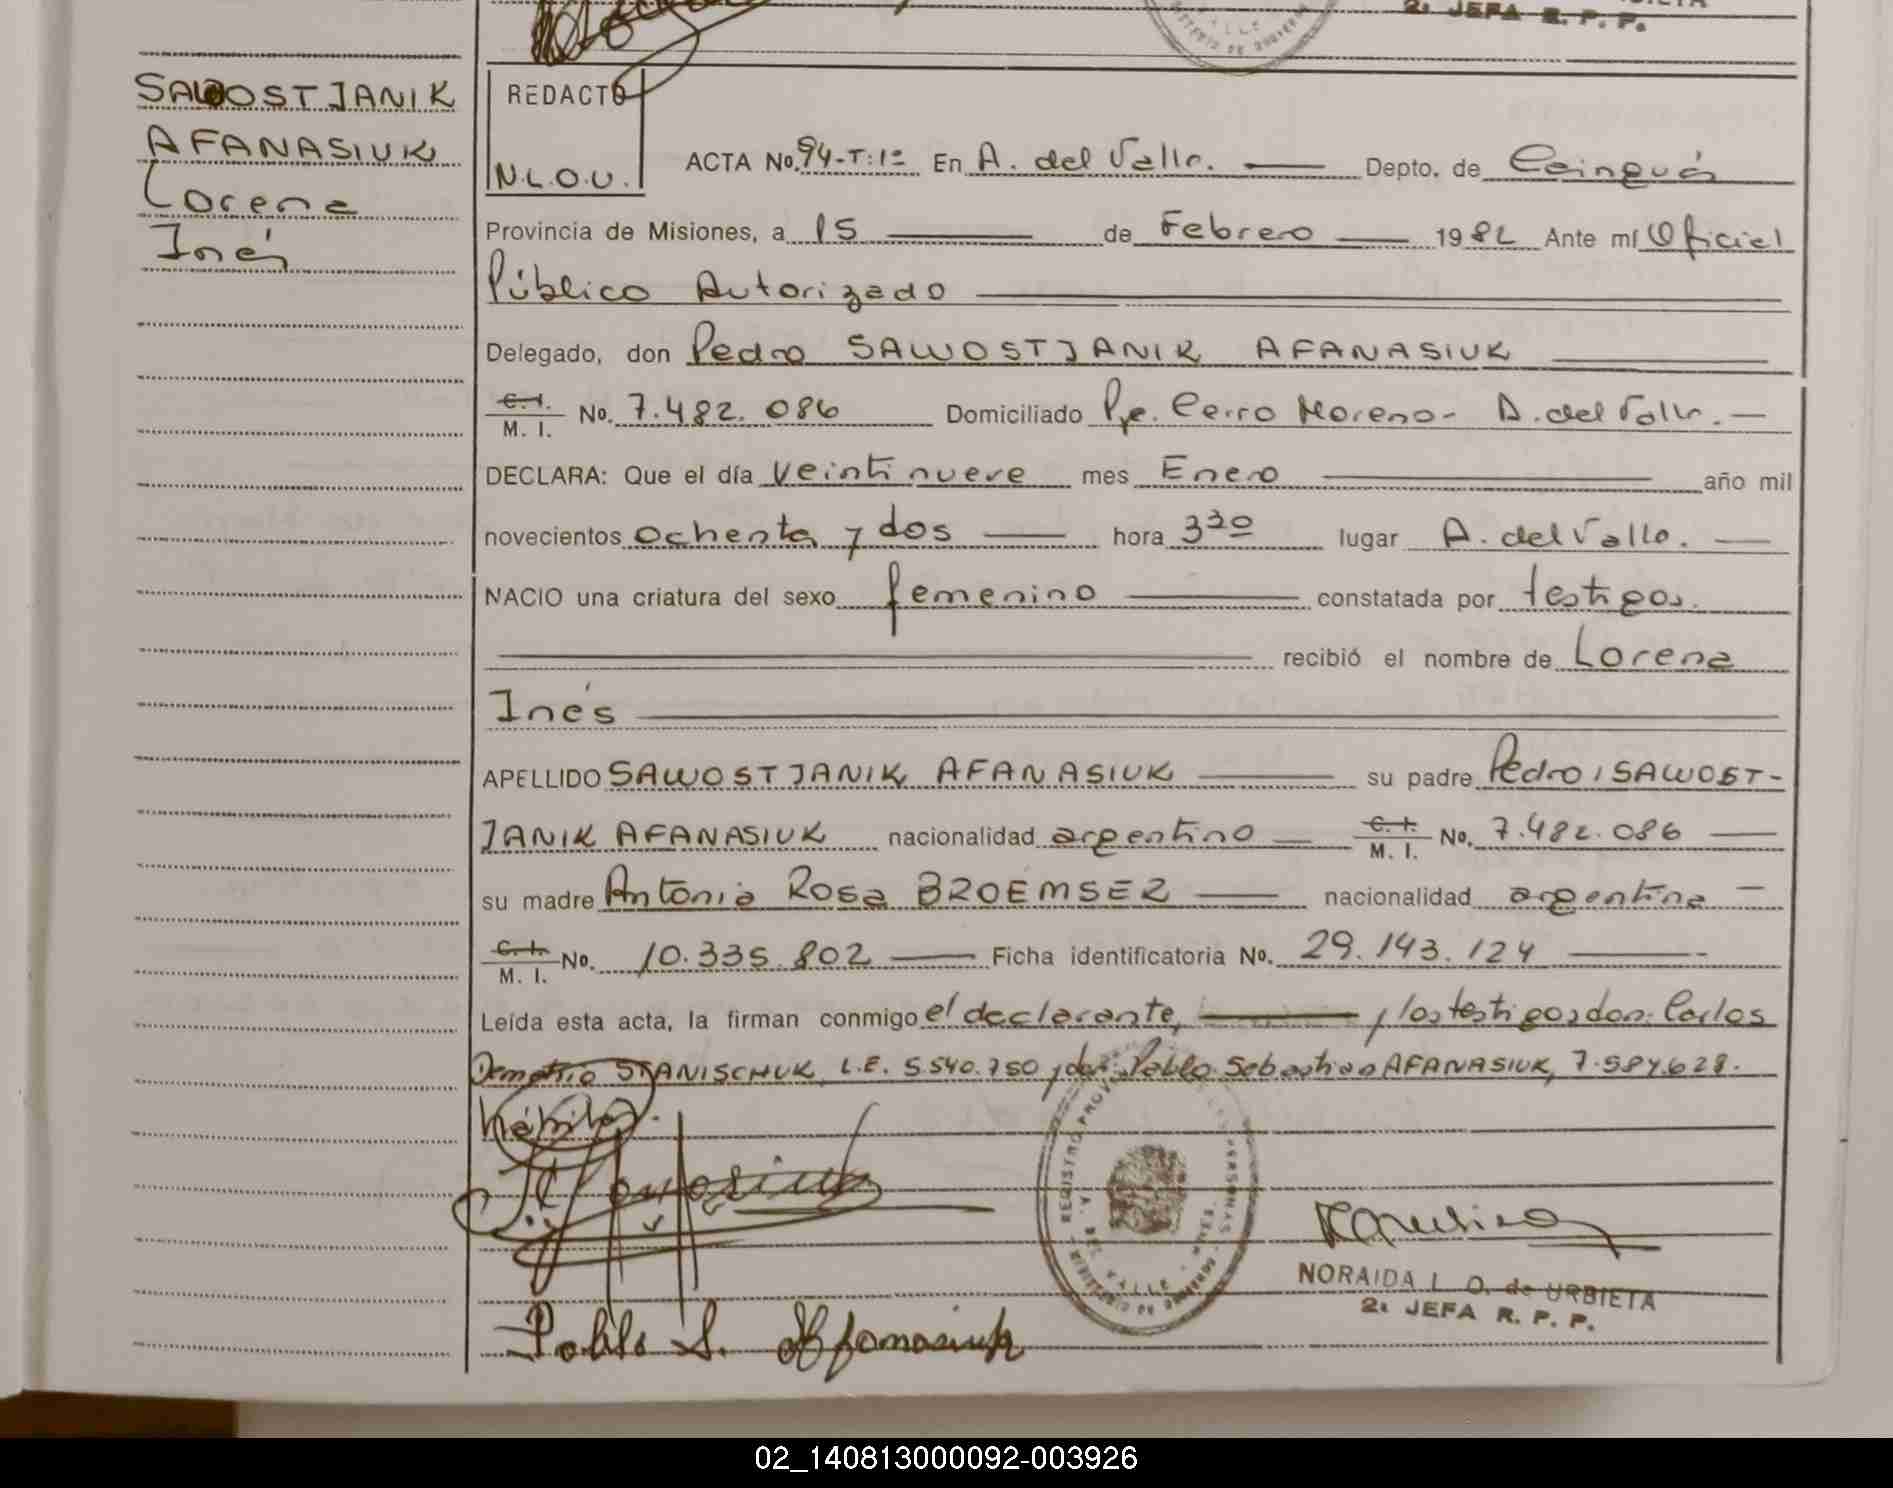 2ª JEFA R. P. P.
SAWOSTJANIK
AFANASIUK
Lorena
Inés
REDACTO
N.L.O.U.
ACTA No. 94-T:1º En A. del Valle. Depto. de Cainguás
Provincia de Misiones, a 15 de Febrero 1982 Ante mí Oficial
Público Autorizado
Delegado, don Pedro SAWOSTJANIK AFANASIUK
C.I. M. I. No. 7.482.086 Domiciliado Pje. Cerro Moreno- A. del Valle.
DECLARA: Que el día veintinueve mes Enero año mil
novecientos ochenta y dos hora 3 30 lugar A. del Valle.
NACIO una criatura del sexo femenino constatada por testigos.
recibió el nombre de Lorena
Inés
APELLIDO SAWOSTJANIK AFANASIUK su padre Pedro SAWOST-
JANIK AFANASIUK nacionalidad argentino C.I. M. I. No. 7.482.086
su madre Antonia Rosa BROEMSER nacionalidad argentina
C.I. M. I. No. 10.335.802 Ficha identificatoria No. 29.143.124
Leída esta acta, la firman conmigo el declarante, y los testigos don: Carlos
Demetrio STANISCHUK, L.E. 5.540.750 y don: Pablo Sebastian AFANASIUK, 7.584.628.
hábiles.
Pablo S. Afanasiuk
NORAIDA L. O. de URBIETA
2ª JEFA R. P. P.
02_140813000092-003926